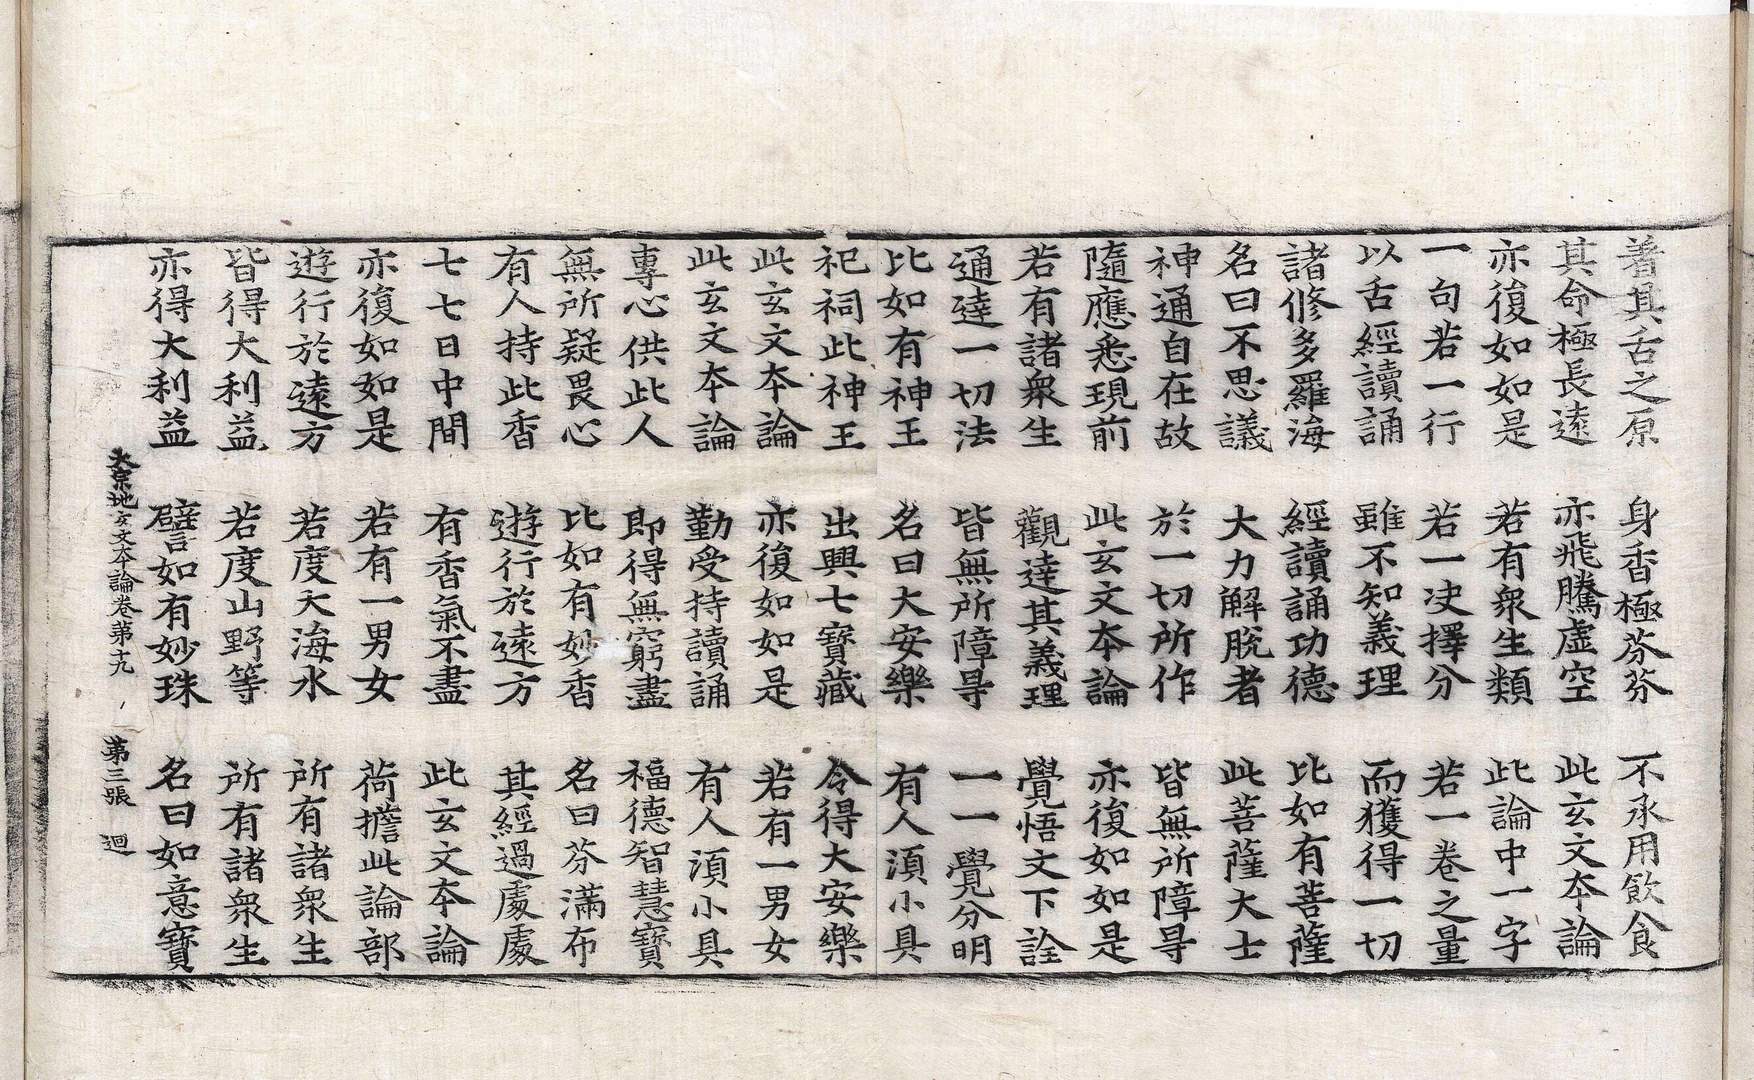 著其舌之原　身香極芬芬　不承用飲食
其命極長遠　亦飛騰虛空　此玄文夲論
亦復如如是　若有衆生類　此論中一字
一句若一行　若一決擇分　若一卷之量
以舌經讀誦　雖不知義理　而獲得一切
諸修多羅海　經讀誦功德　比如有菩薩
名曰不思議　大力解脫者　此菩薩大士
神通自在故　於一切所作　皆無所障㝵
隨應悉現前　此玄文夲論　亦復如如是
若有諸衆生　觀達其義理　覺悟文下詮
通達一切法　皆無所障㝵　一一覺分明
比如有神王　名曰大安樂　有人湏小具
祀祠此神王　出興七寶藏　令得大安樂
此玄文夲論　亦復如如是　若有一男女
此玄文夲論　勤受持讀誦　有人湏小具
專心供此人　即得無窮盡　福德智慧寶
無所疑畏心　比如有妙香　名曰芬滿布
有人持此香　遊行於遠方　其經過處處
七七日中間　有香氣不盡　此玄文夲論
亦復如如是　若有一男女　荷擔此論部
遊行於遠方　若度大海水　所有諸衆生
皆得大利益　若度山野等　所有諸衆生
亦得大利益　譬如有妙珠　名曰如意寶
大宗地玄文夲論卷第十九　第三張　迴